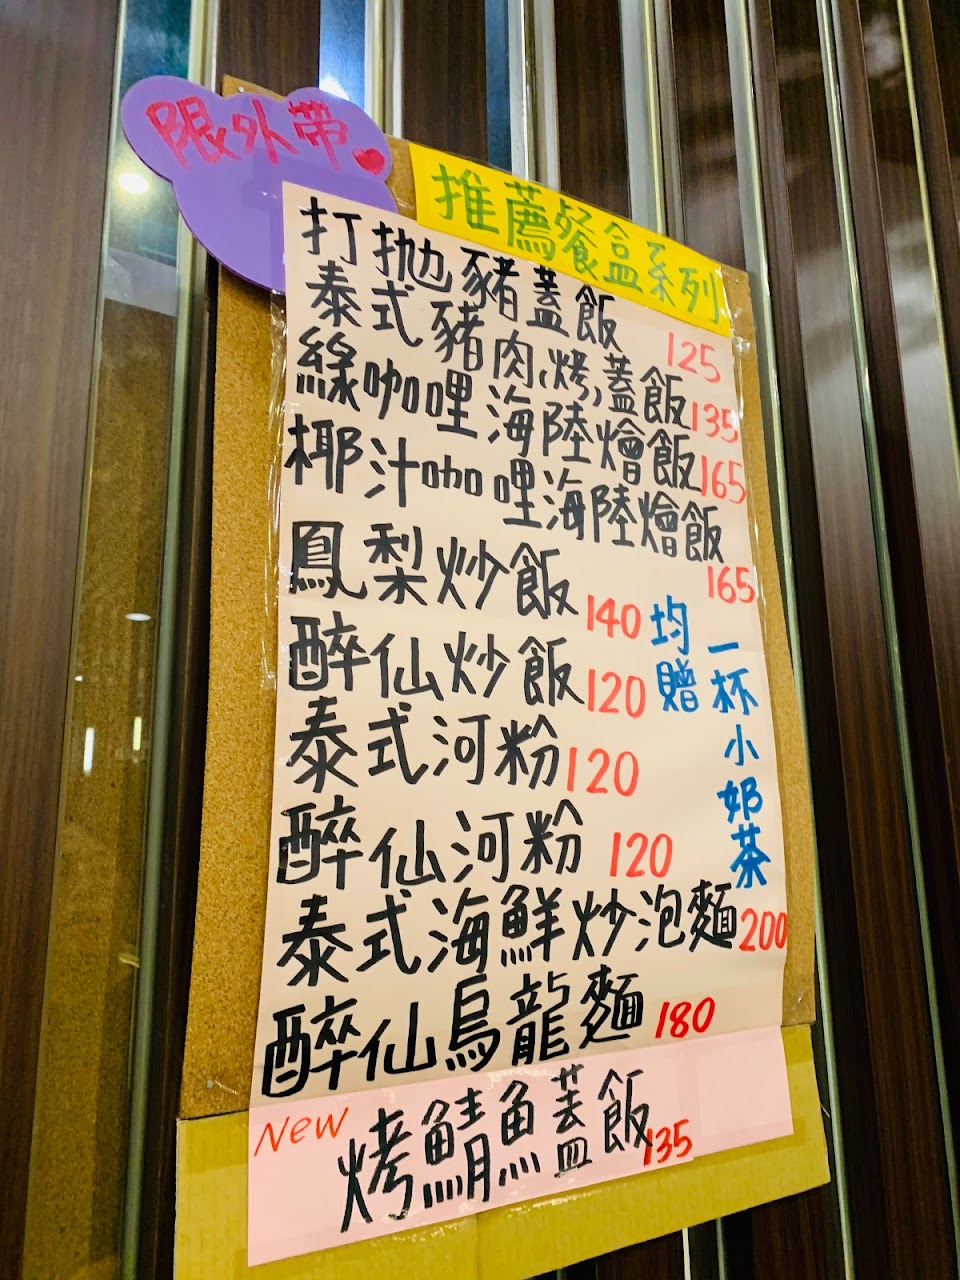 限外帶
推薦餐盒系列
打拋豬蓋飯 125
泰式豬肉(烤)蓋飯 135
綠咖哩海陸燴飯 165
椰汁咖哩海陸燴飯 165
鳳梨炒飯 140
醉仙炒飯 120
泰式河粉 120
醉仙河粉 120
泰式海鮮炒泡麵 200
醉仙烏龍麵 180
均贈
一杯小奶茶
New 烤鯖魚蓋飯 135